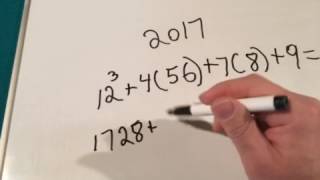 2017
12³+4(56)+7(8)+9=
1728+